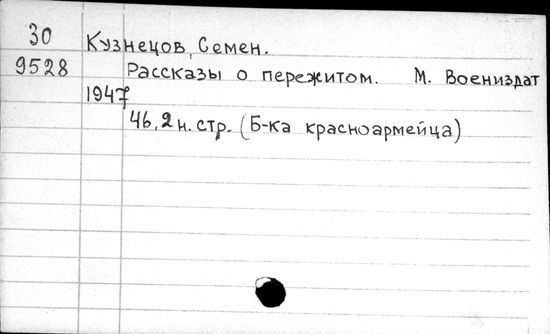 30
Кузнецов, Семен.
9528
Рассказы о пережитом. М. Воениздат
1947
46, 2 н. стр. (Б-ка красноармейца)